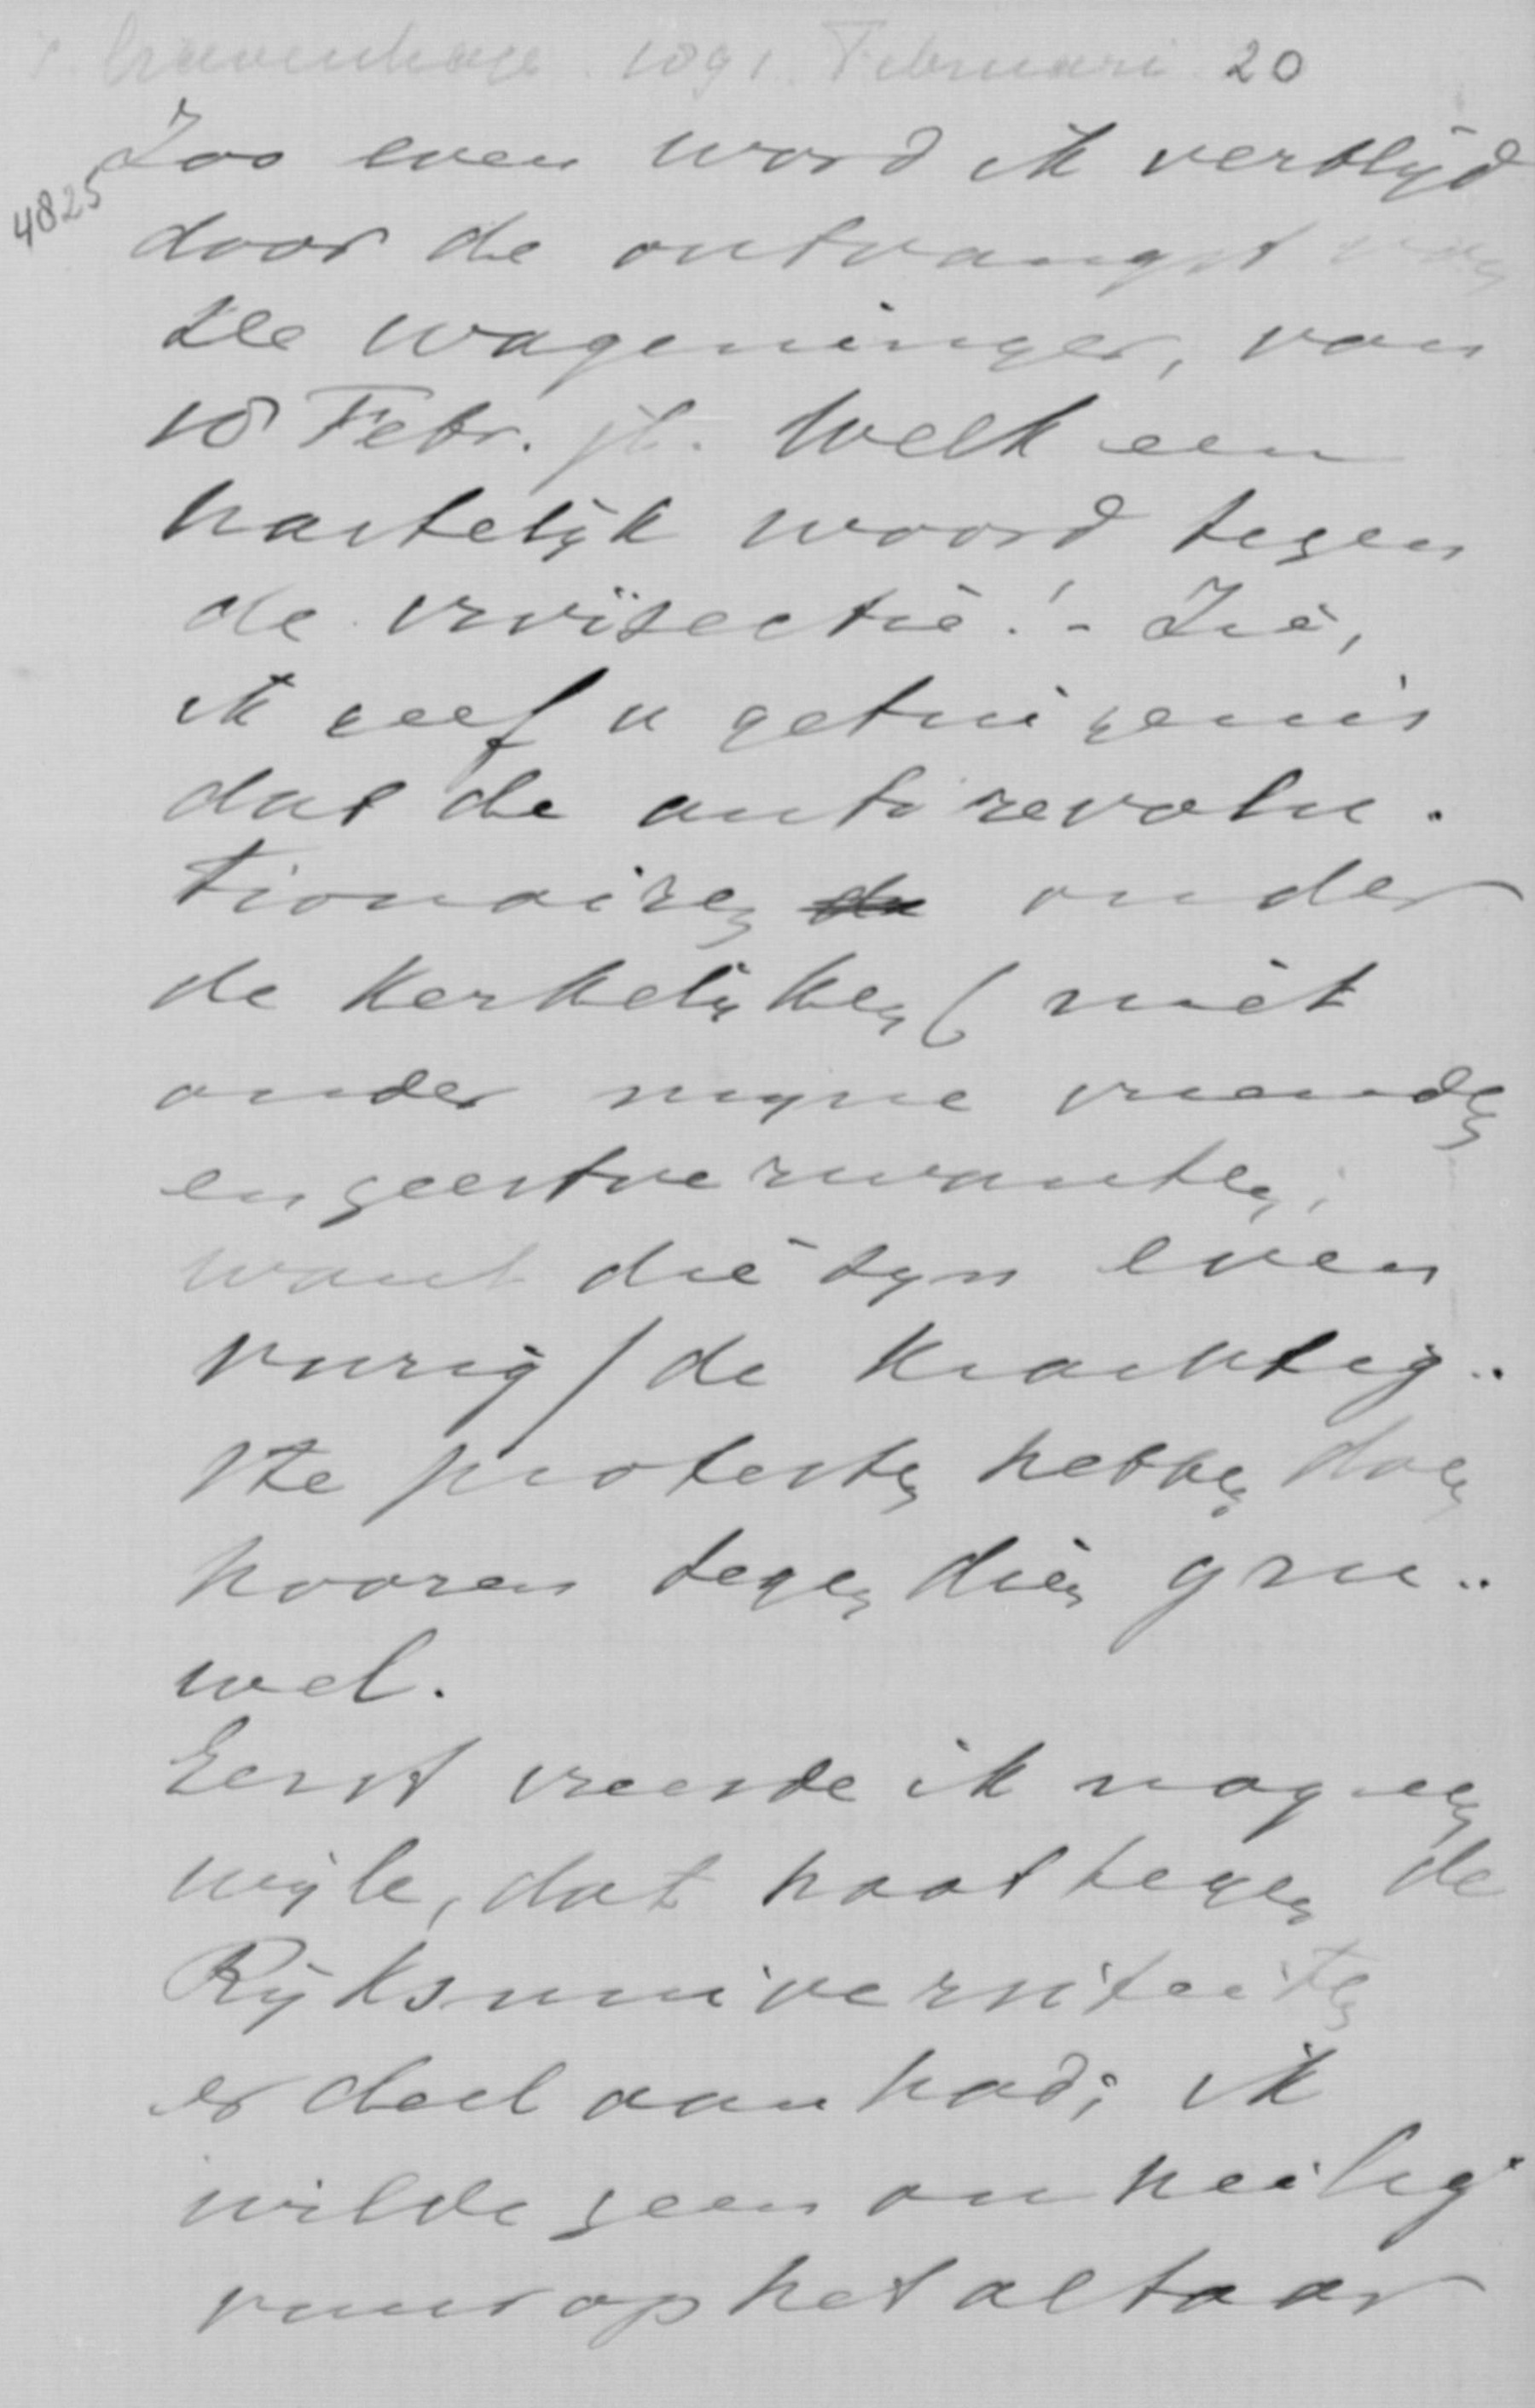 's Gravenhage. 1891. Februari 20
4825
Zoo even word ik verblijd
door de ontvangst van
De Wageninger, van
18 Febr. jl. Welk een
hartelijk woord tegen
de vivisectie! - Zie,
ik geef u getuigenis
dat de antirevolu-
tionairen de onder
de Kerkelijken (niet
onder mijne vrienden
en geestverwanten;
want die zijn even
vurig) de krachtig-
ste protesten hebben doen
hooren tegen dien gru-
wel.
Eerst vreesde ik nog een
wijle, dat haat tegen de
Rijksuniversiteiten
er deel aan had; ik
wilde geen onheilig
vuur op het altaar